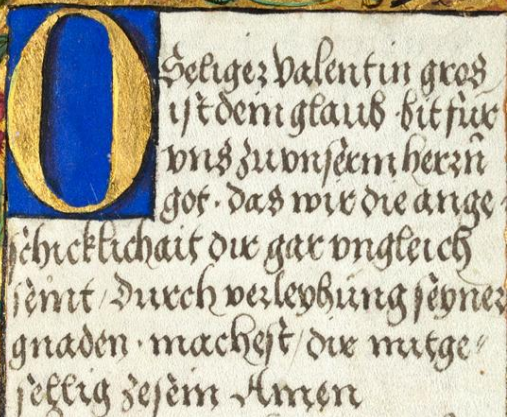 O Seliger Valentin gros
ist dein glaub · bit für
vns zu vnserm herrn̄
got · das wir die ange⸗
schicklichait dir gar vngleich
seint / durch verleyhung seyner
gnaden · machest / dir mitge⸗
sellig zesein Amen